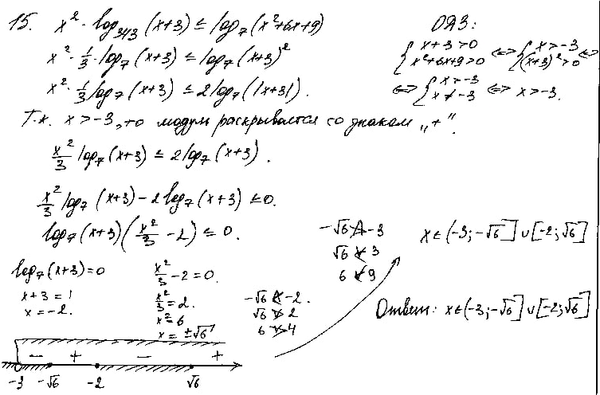 15. x² · log₃₄₃(x+3) ≤ log₇(x²+6x+9)
x² · 1/3 · log₇(x+3) ≤ log₇(x+3)²
x² · 1/3 log₇(x+3) ≤ 2log₇(|x+3|).
ОДЗ:
{ x+3>0 x²+6x+9>0 <=> { x>-3 (x+3)²>0 <=>
<=> { x>-3 x≠-3 <=> x>-3.
Т.к. x>-3, то модуль раскрывается со знаком „+".
x²/3 log₇(x+3) ≤ 2log₇(x+3).
x²/3 log₇(x+3) - 2log₇(x+3) ≤ 0.
log₇(x+3)(x²/3 - 2) ≤ 0.
log₇(x+3)=0
x+3=1
x=-2.
x²/3 - 2=0.
x²/3=2.
x²=6
x=±√6
-√6 < -2.
√6 > 2
6 > 4
-√6 > -3
√6 < 3
6 < 9
- + - +
-3 -√6 -2 √6
x∈(-3;-√6]∪[-2;√6]
Ответ: x∈(-3;-√6]∪[-2;√6]